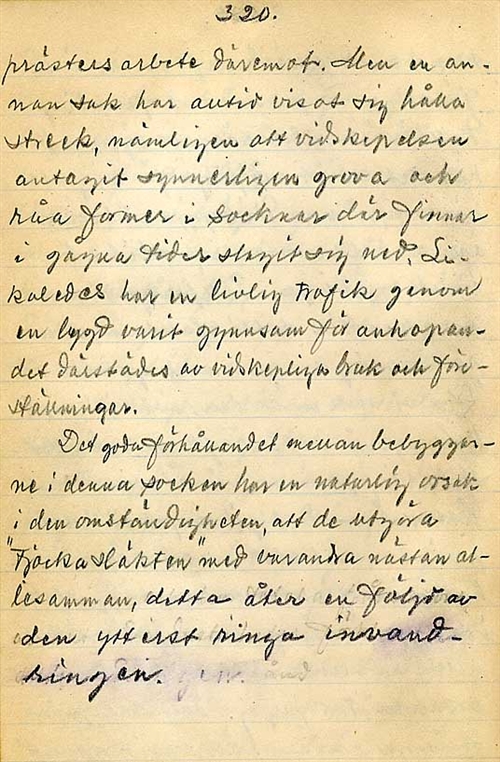 320.
prästers arbete däremot. Men en an-
nan sak har alltid visat sig hålla
streck, nämligen att vidskepelsen
antagit synnerligen grova och
råa former i socknar där finnar
i gågna tider slagit sig ned. Li-
kaledes har en livlig trafik genom
en bygd varit gynnsam för anhopan-
det därstädes av vidskepliga bruk och före-
ställningar.
Det goda förhållandet mellan bebyggar-
ne i denna socken har en naturlig orsak
i den omständigheten, att de utgöra
"Tjocka släkten" med varandra nästan al-
lesamman, detta åter en följd av
den ytterst ringa invand-
ringen.